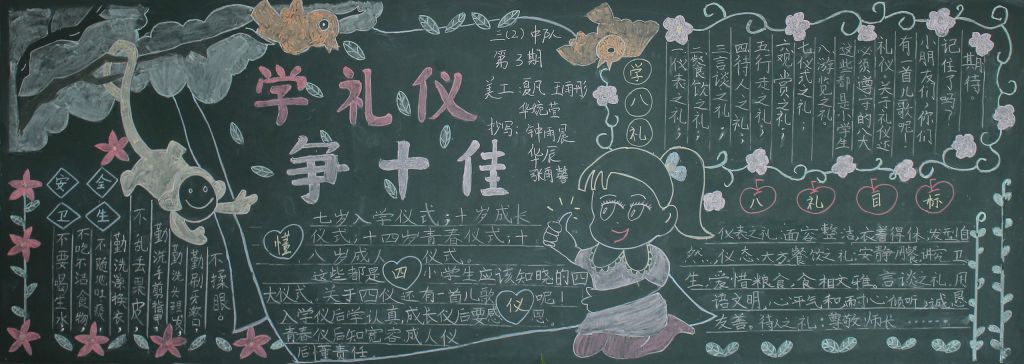 学礼仪
争十佳
三(2)中队
第3期
美工:夏凡 王雨彤
华婉莹
抄写:钟雨晨
华辰
张雨馨
安全
卫生
不揉眼
勤刷牙漱口
勤洗头理
勤洗手剪指甲
不乱丢果皮
勤洗澡换衣
不随地吐痰
不吃不洁食物
不要喝生水
懂
四
仪
七岁入学仪式;十岁成长
仪式;十四岁青春仪式;十
八岁成人 仪式。
这些都是 小学生应该知晓的四
大仪式,关于四仪还有一首儿歌 呢!
入学仪后学认真,成长仪后要感 恩。
青春仪后知宽容,成人仪
后懂责任
学八礼
期待
记住了吗?
小朋友们,你们
有一首儿歌呢!
礼仪,关于礼仪还
必须遵守的八大
这些都是小学生
八游览之礼
七仪式之礼;
六观赏之礼;
五行走之礼;
四待人之礼;
三言谈之礼;
二餐饮之礼;
一仪表之礼;
八礼目标
仪表之礼:面容整洁,衣着得体,发型自
然,仪态大方。餐饮之礼:安静用餐,讲卫
生,爱惜粮食,食相文雅。言谈之礼:用
语文明,心平气和,耐心倾听,诚恳
友善。待人之礼:尊敬师长………